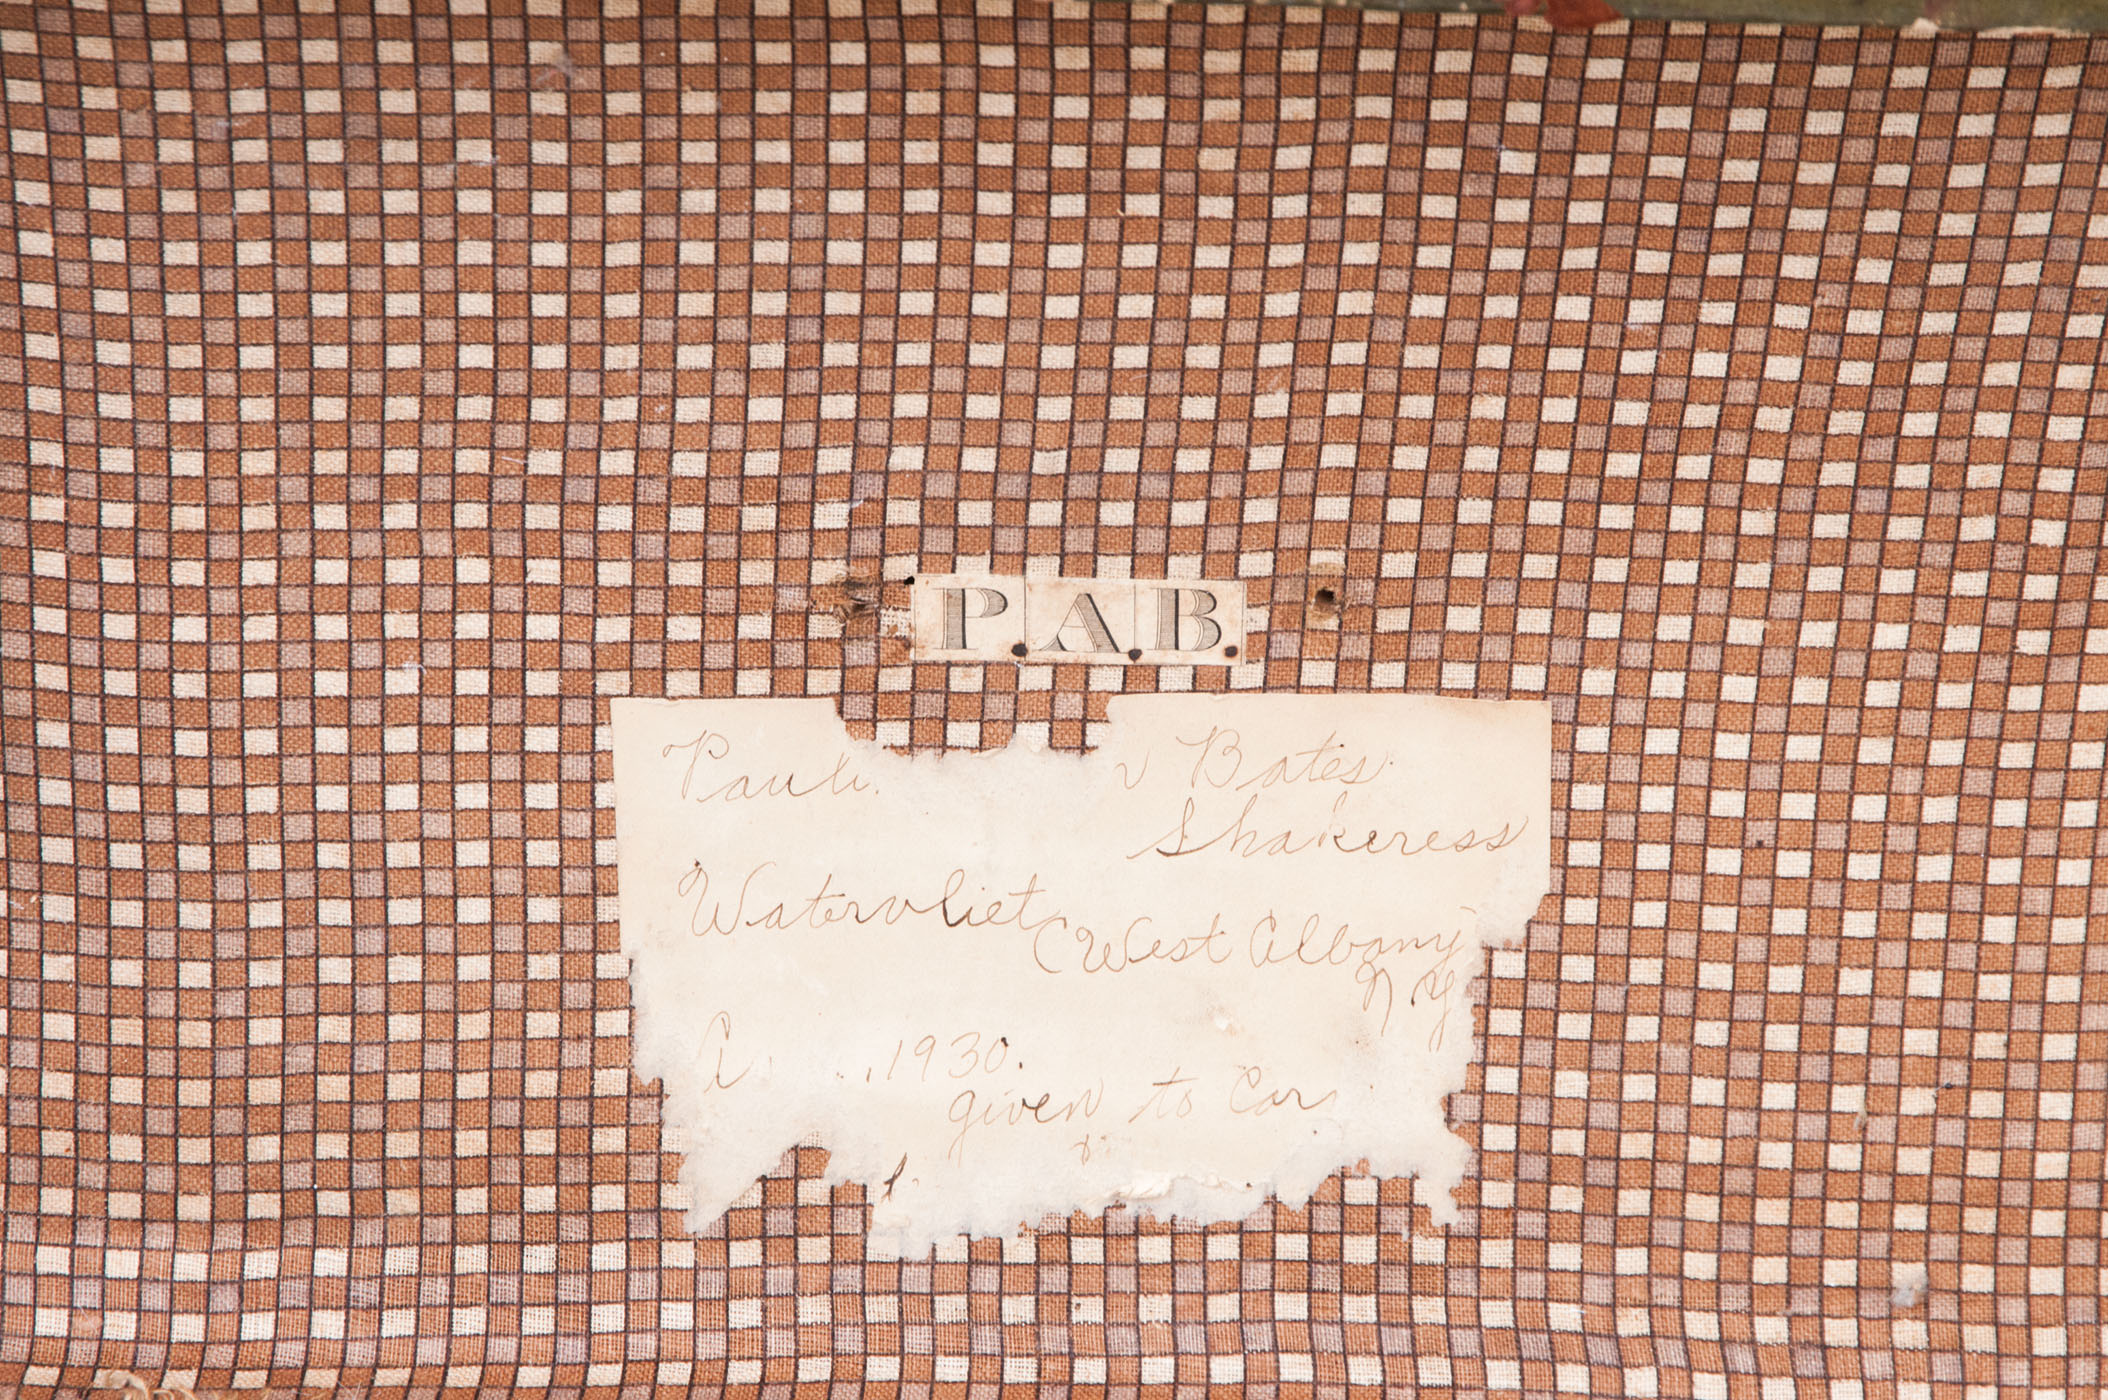 P.A.B.
Bates
Shakeress
Watervliet
(West Albany
N Y
1930.
given to